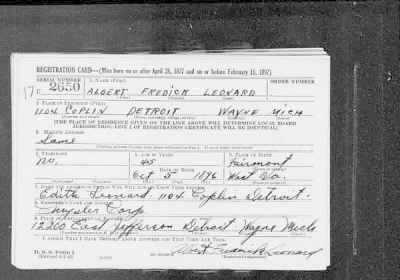 REGISTRATION CARD—(Men born on or after April 28, 1877 and on or before February 16, 1897)
SERIAL NUMBER 1. NAME (Print) ORDER NUMBER
U 2650 ALBERT FREDICK LEONARD
(First) (Middle) (Last)
2. PLACE OF RESIDENCE (Print)
1104 COPLIN DETROIT WAYNE MICH
(Number and street) (Town, township, village, or city) (County) (State)
[THE PLACE OF RESIDENCE GIVEN ON THE LINE ABOVE WILL DETERMINE LOCAL BOARD
JURISDICTION; LINE 2 OF REGISTRATION CERTIFICATE WILL BE IDENTICAL]
3. MAILING ADDRESS
Same
4. TELEPHONE 5. AGE IN YEARS 6. PLACE OF BIRTH
no. 45 Fairmont
DATE OF BIRTH
Oct 5 1896 West Va.
7. NAME AND ADDRESS OF PERSON WHO WILL ALWAYS KNOW YOUR ADDRESS
Edith Leonard. 1104 Coplin Detroit.
8. EMPLOYER'S NAME AND ADDRESS
Chrysler Corp
9. PLACE OF EMPLOYMENT OR BUSINESS
12200 East Jefferson Detroit Wayne Mich
I AFFIRM THAT I HAVE VERIFIED ABOVE ANSWERS AND THAT THEY ARE TRUE.
D. S. S. Form 1
Albert Fredrick Leonard